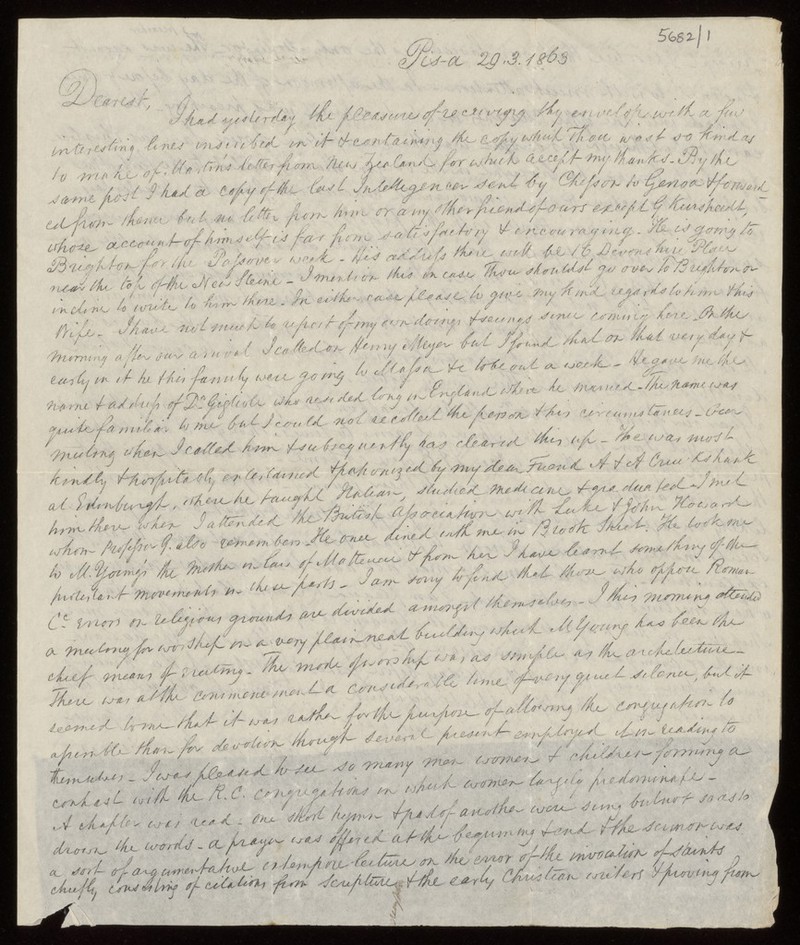 5682/1
Pisa 29.3.1863
Dearest,
I had yesterday the pleasure of receiving thy envelope with a few
interesting lines inscribed in it & containing the copy which Thou wast so kind as
to make of Martin's letter from New Zealand for which accept my thanks - By the
same post I had a copy of the last Intelligencer sent by Chesson to Genoa & forward
ed from thence but no letter from him or any other friend of ours except G Kursheedt,
whose account of himself is far from satisfactory & encouraging - He is going to
Brighton for the Passover week - his address there will be 16 Devonshire Place
near the top of the New Steine - I mention this in case Thou shouldst go over to Brighton or
incline to write to him there. In either case please to give my kind regards to him & his
Wife - I have not much to report of my own doings & seeings since coming here. On the
morning after our arrival I called on Henry Meyer but I found that on that very day &
early in it he & his family were going to Massa &c to be out a week - He gave me the
name & address of Dr Giglioli who resided long in England where he married - The name was
quite familiar to me but I could not recollect the person & his circumstances - Our
meeting when I called him & subsequently has cleared this up - He was most
kindly & hospitably entertained & patronized by my dear Friend A & A Cruickshank
at Edinburgh, where he taught Italian, studied medicine & graduated - I met
him there when I attended the British Association with Luke & John Howard
whom Professor G. also remembers He once dined with me in Brook Street. He took me
to M. Young's the Mother in law of Matteucci & from her I have learnt something of the
protestant movements in these parts - I am sorry to find that those who oppose Roman
Cc errors on religious grounds are divided amongst themselves - I this morning attended
a meeting for worship in a very plain neat building which M Young has been the
chief means of erecting - The mode of worship was as simple as the architecture -
There was at the commencement a considerable time of very quiet silence, but it
seemed to me that it was rather for the purpose of allowing the congregation to
assemble than for devotion though several present employed it in reading to
themselves - I was pleased to see so many men women & children forming a
contrast with the R.C. congregations in which women largely predominate -
A chapter was read - one short hymn & part of another were sung but not so as to
drown the words - a prayer was offered at the beginning & end & the sermon was
a sort of argumentative extempore lecture on the error of the invocation of saints
chiefly consisting of citations from Scripture & the early Christian writers & proving from